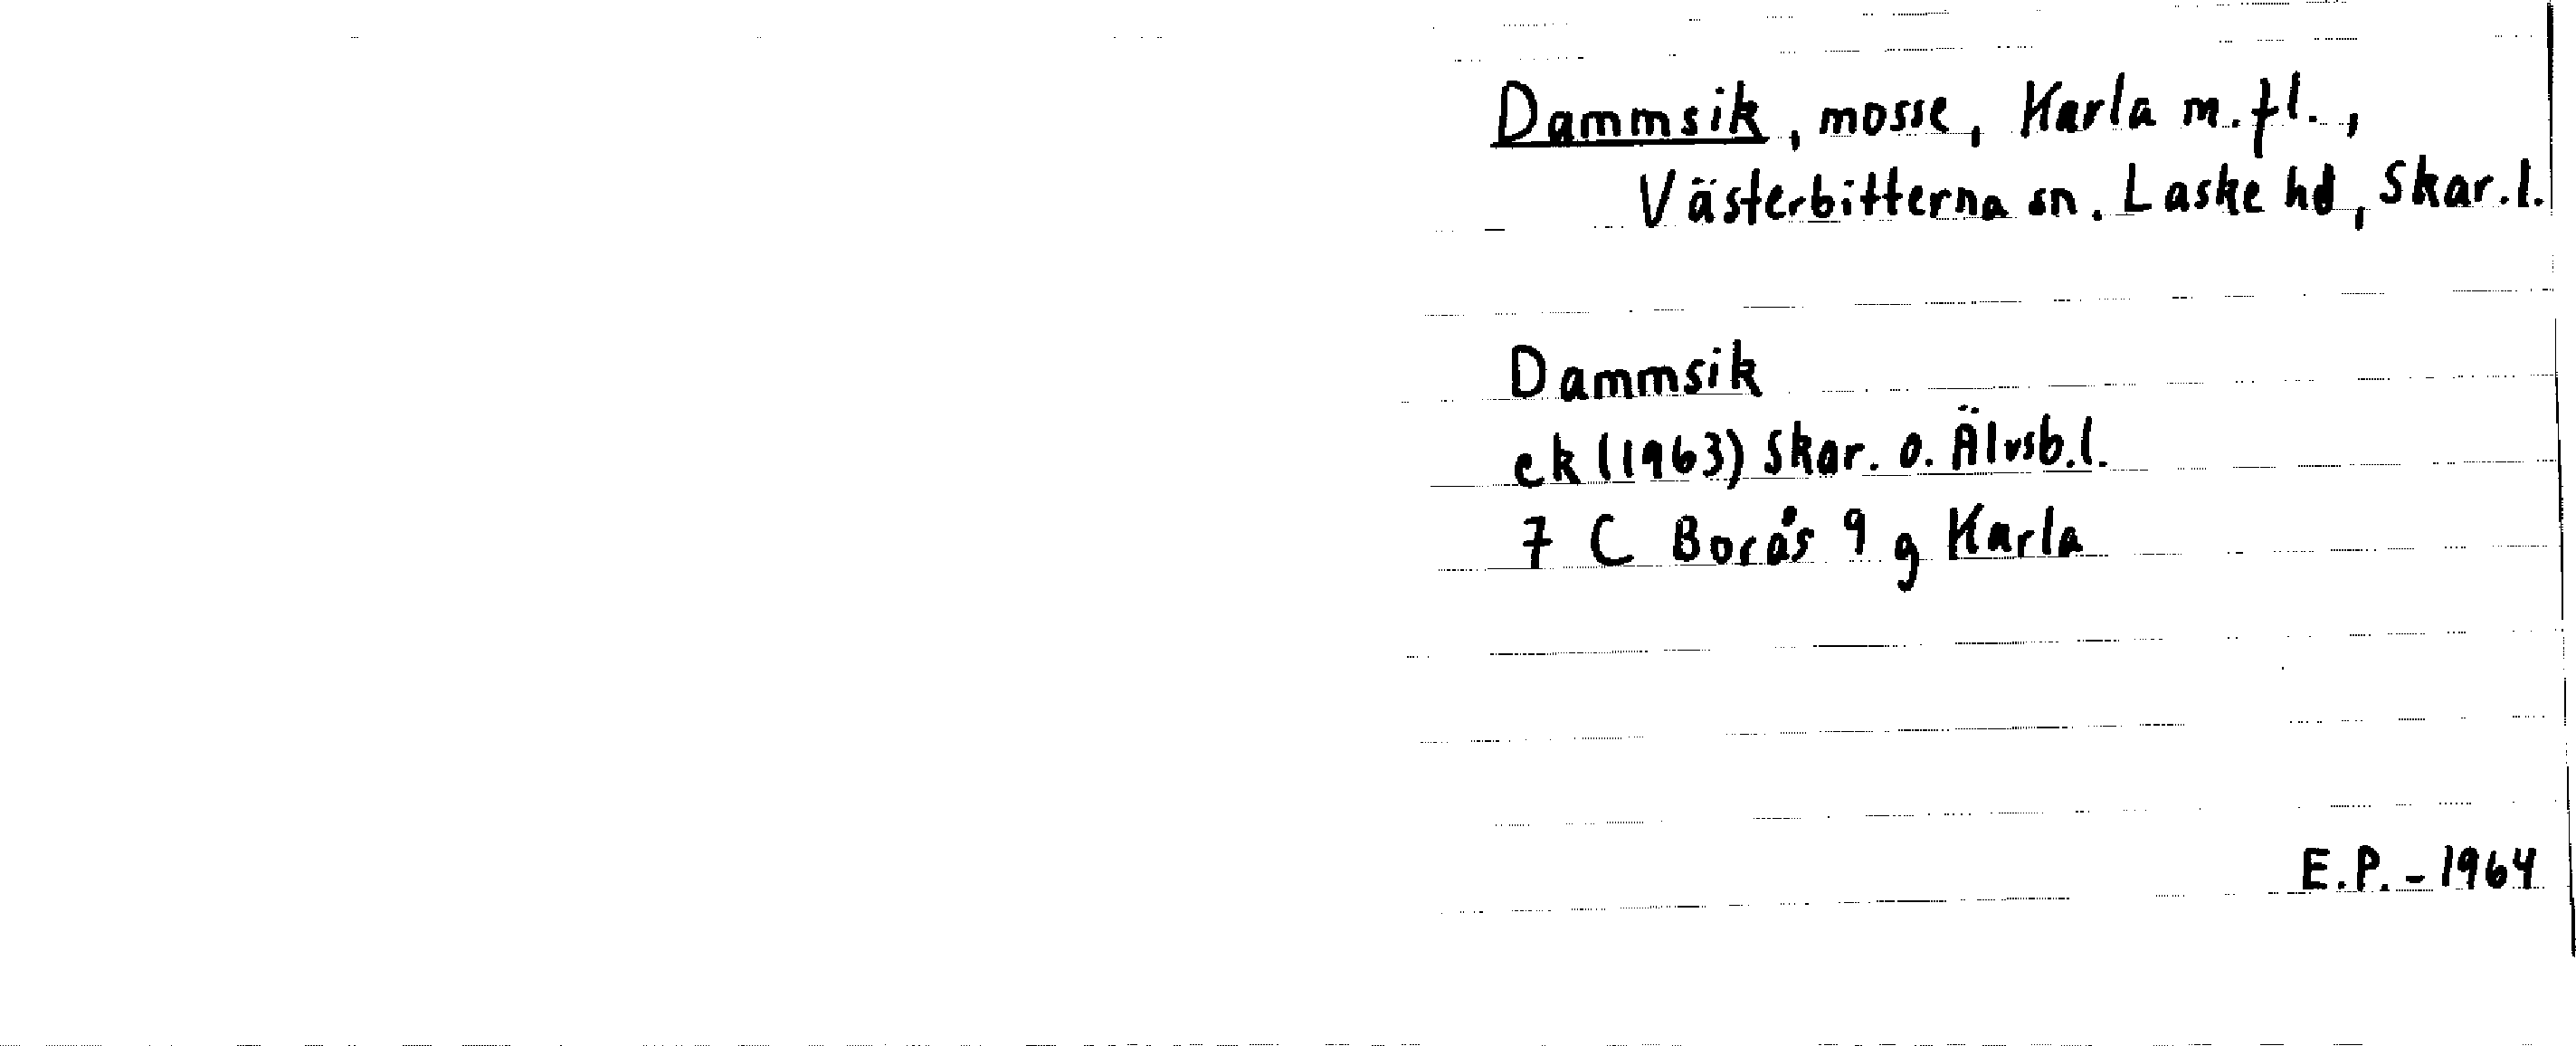 Dammsik, mosse, Karla m.fl.,
Västerbitterna sn. Laske hd, Skar.l.
Dammsik
ek (1963) Skar. o. Älvsb.l.
7 C Borås 9 g Karla
E.P. - 1964